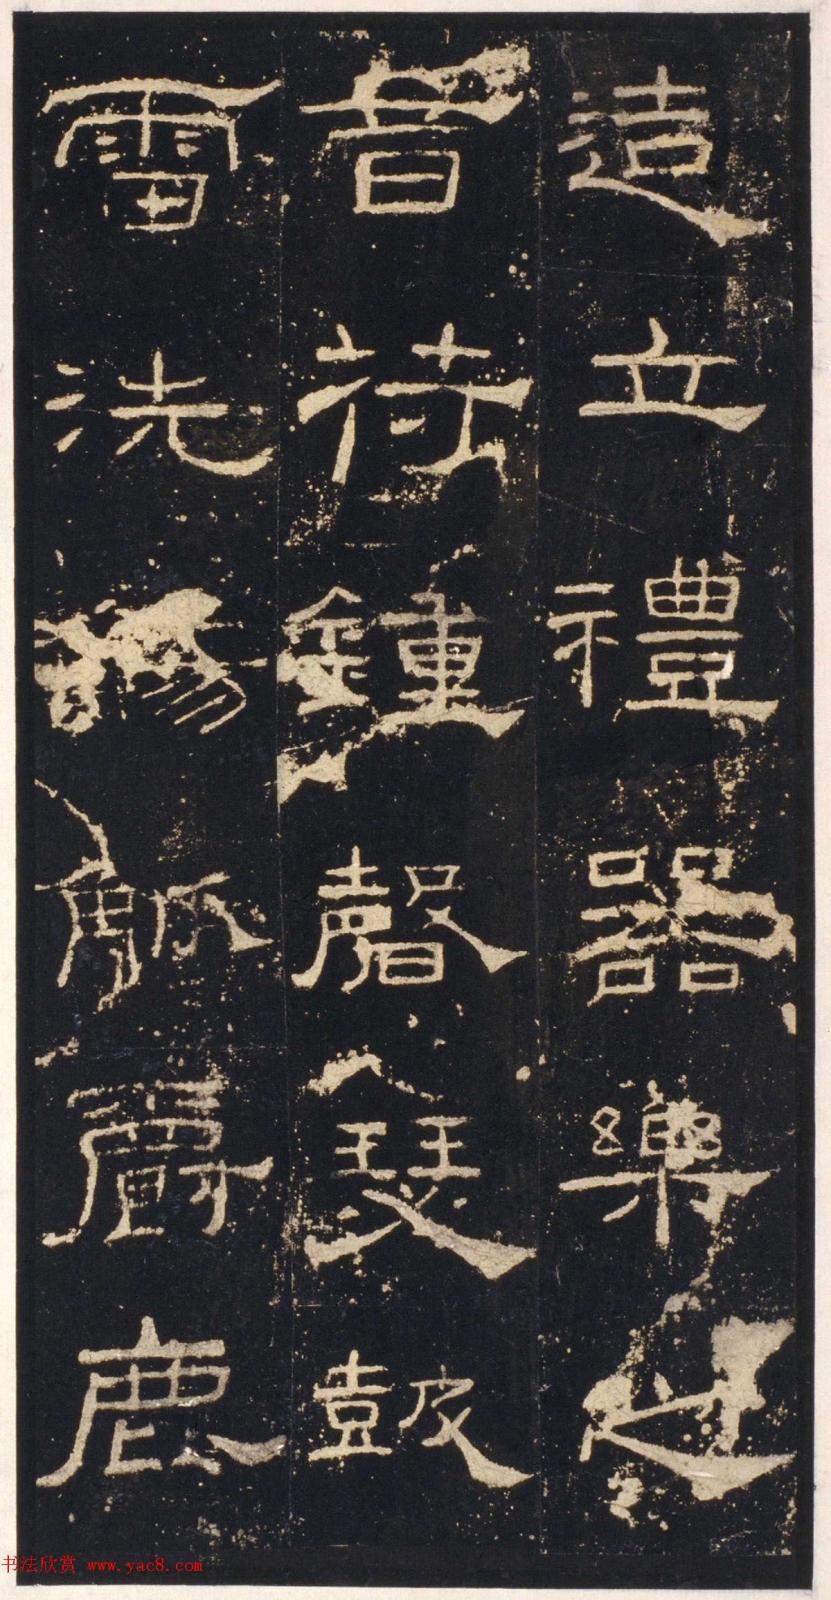 造立禮器樂之
音苻鍾磬瑟鼓
雷洗觴觚爵鹿
书法欣赏 www.yac8.com